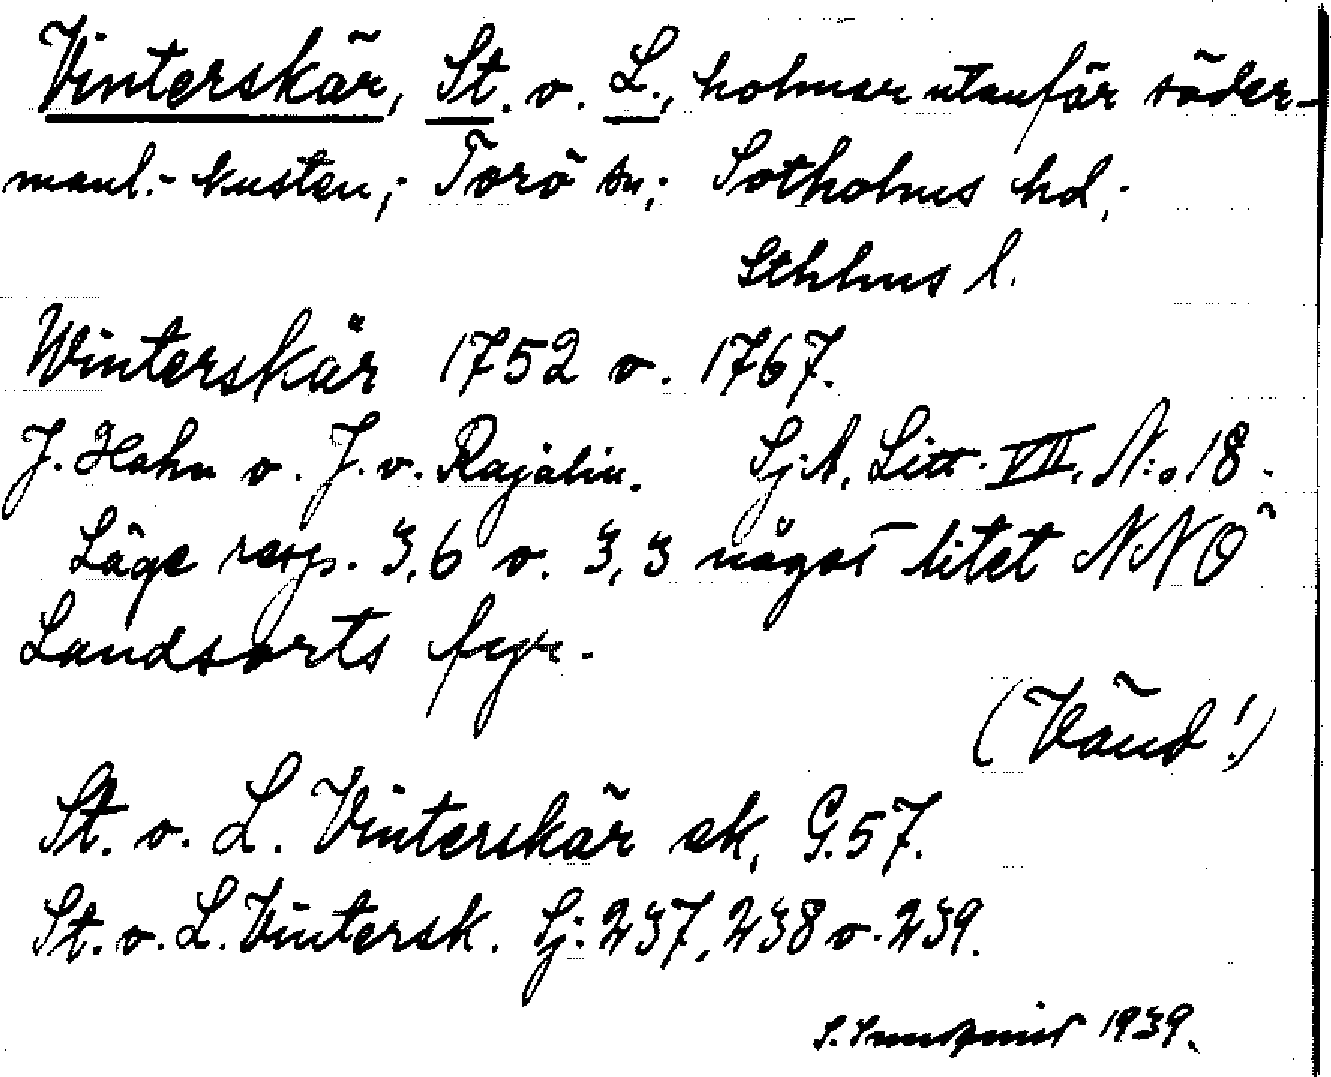 Vinterskär, St. o. L., holmar utanför söder-
manl.-kusten; Torö sn; Sotholms hd;
Sthlms l.
Winterskär 1752 o. 1767.
J. Hahn o. J. v. Rajalin. Sj.A. Litt. VII. N:o 18.
Läge resp. 3,6 o. 3,3 något litet NNO
Landsorts fyr.
(Vänd!)
St. o. L. Vinterskär ek. G. 57.
St. o. L. Vintersk. Sj: 237, 238 o. 239.
S. 1939.